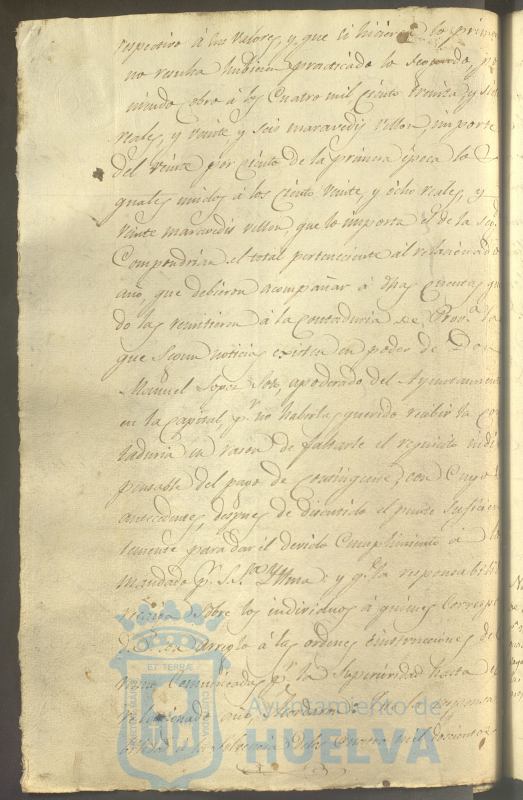 respectivo á los valores, y que si hicieron lo primero
no resulta hubiesen practicado lo segundo, po
niendo cobro á los cuatro mil ciento treinta y siete
reales, y veinte y seis maravedis vellon, importe
del veinte por ciento de la primera época los
quales unidos á los ciento veinte, y ócho reales, y
veinte maravedis vellon, que lo importa el de la seg.
Compondrian el total perteneciente al relacionado
año, que debieron acompañar á dhas cuentas qu
do las remitieron á la contaduria de Prov.ª la
que segun noticias existen en poder de Don
Manuel Lopez apoderado del Ayuntamiento
en la capital, p.r no haberlas querido recibir la Con
taduria en razon de faltarle el requisito indis
pensable del pago de contingente; con cuyos
antecedentes, despues de discutido el punto suficien
temente para dar el devido cumplimiento á lo
mandado p.r S.S. Yllma y q.e la responsabilidad
sobre los individuos á quienes corresp
arreglo á las ordenes é instrucciones del
ramo comunicadas p.r la Superioridad hasta el
relacionado año, Acordaron:
cuatro mil doscientos
ET TERRÆ
Ayuntamiento de
HUELVA